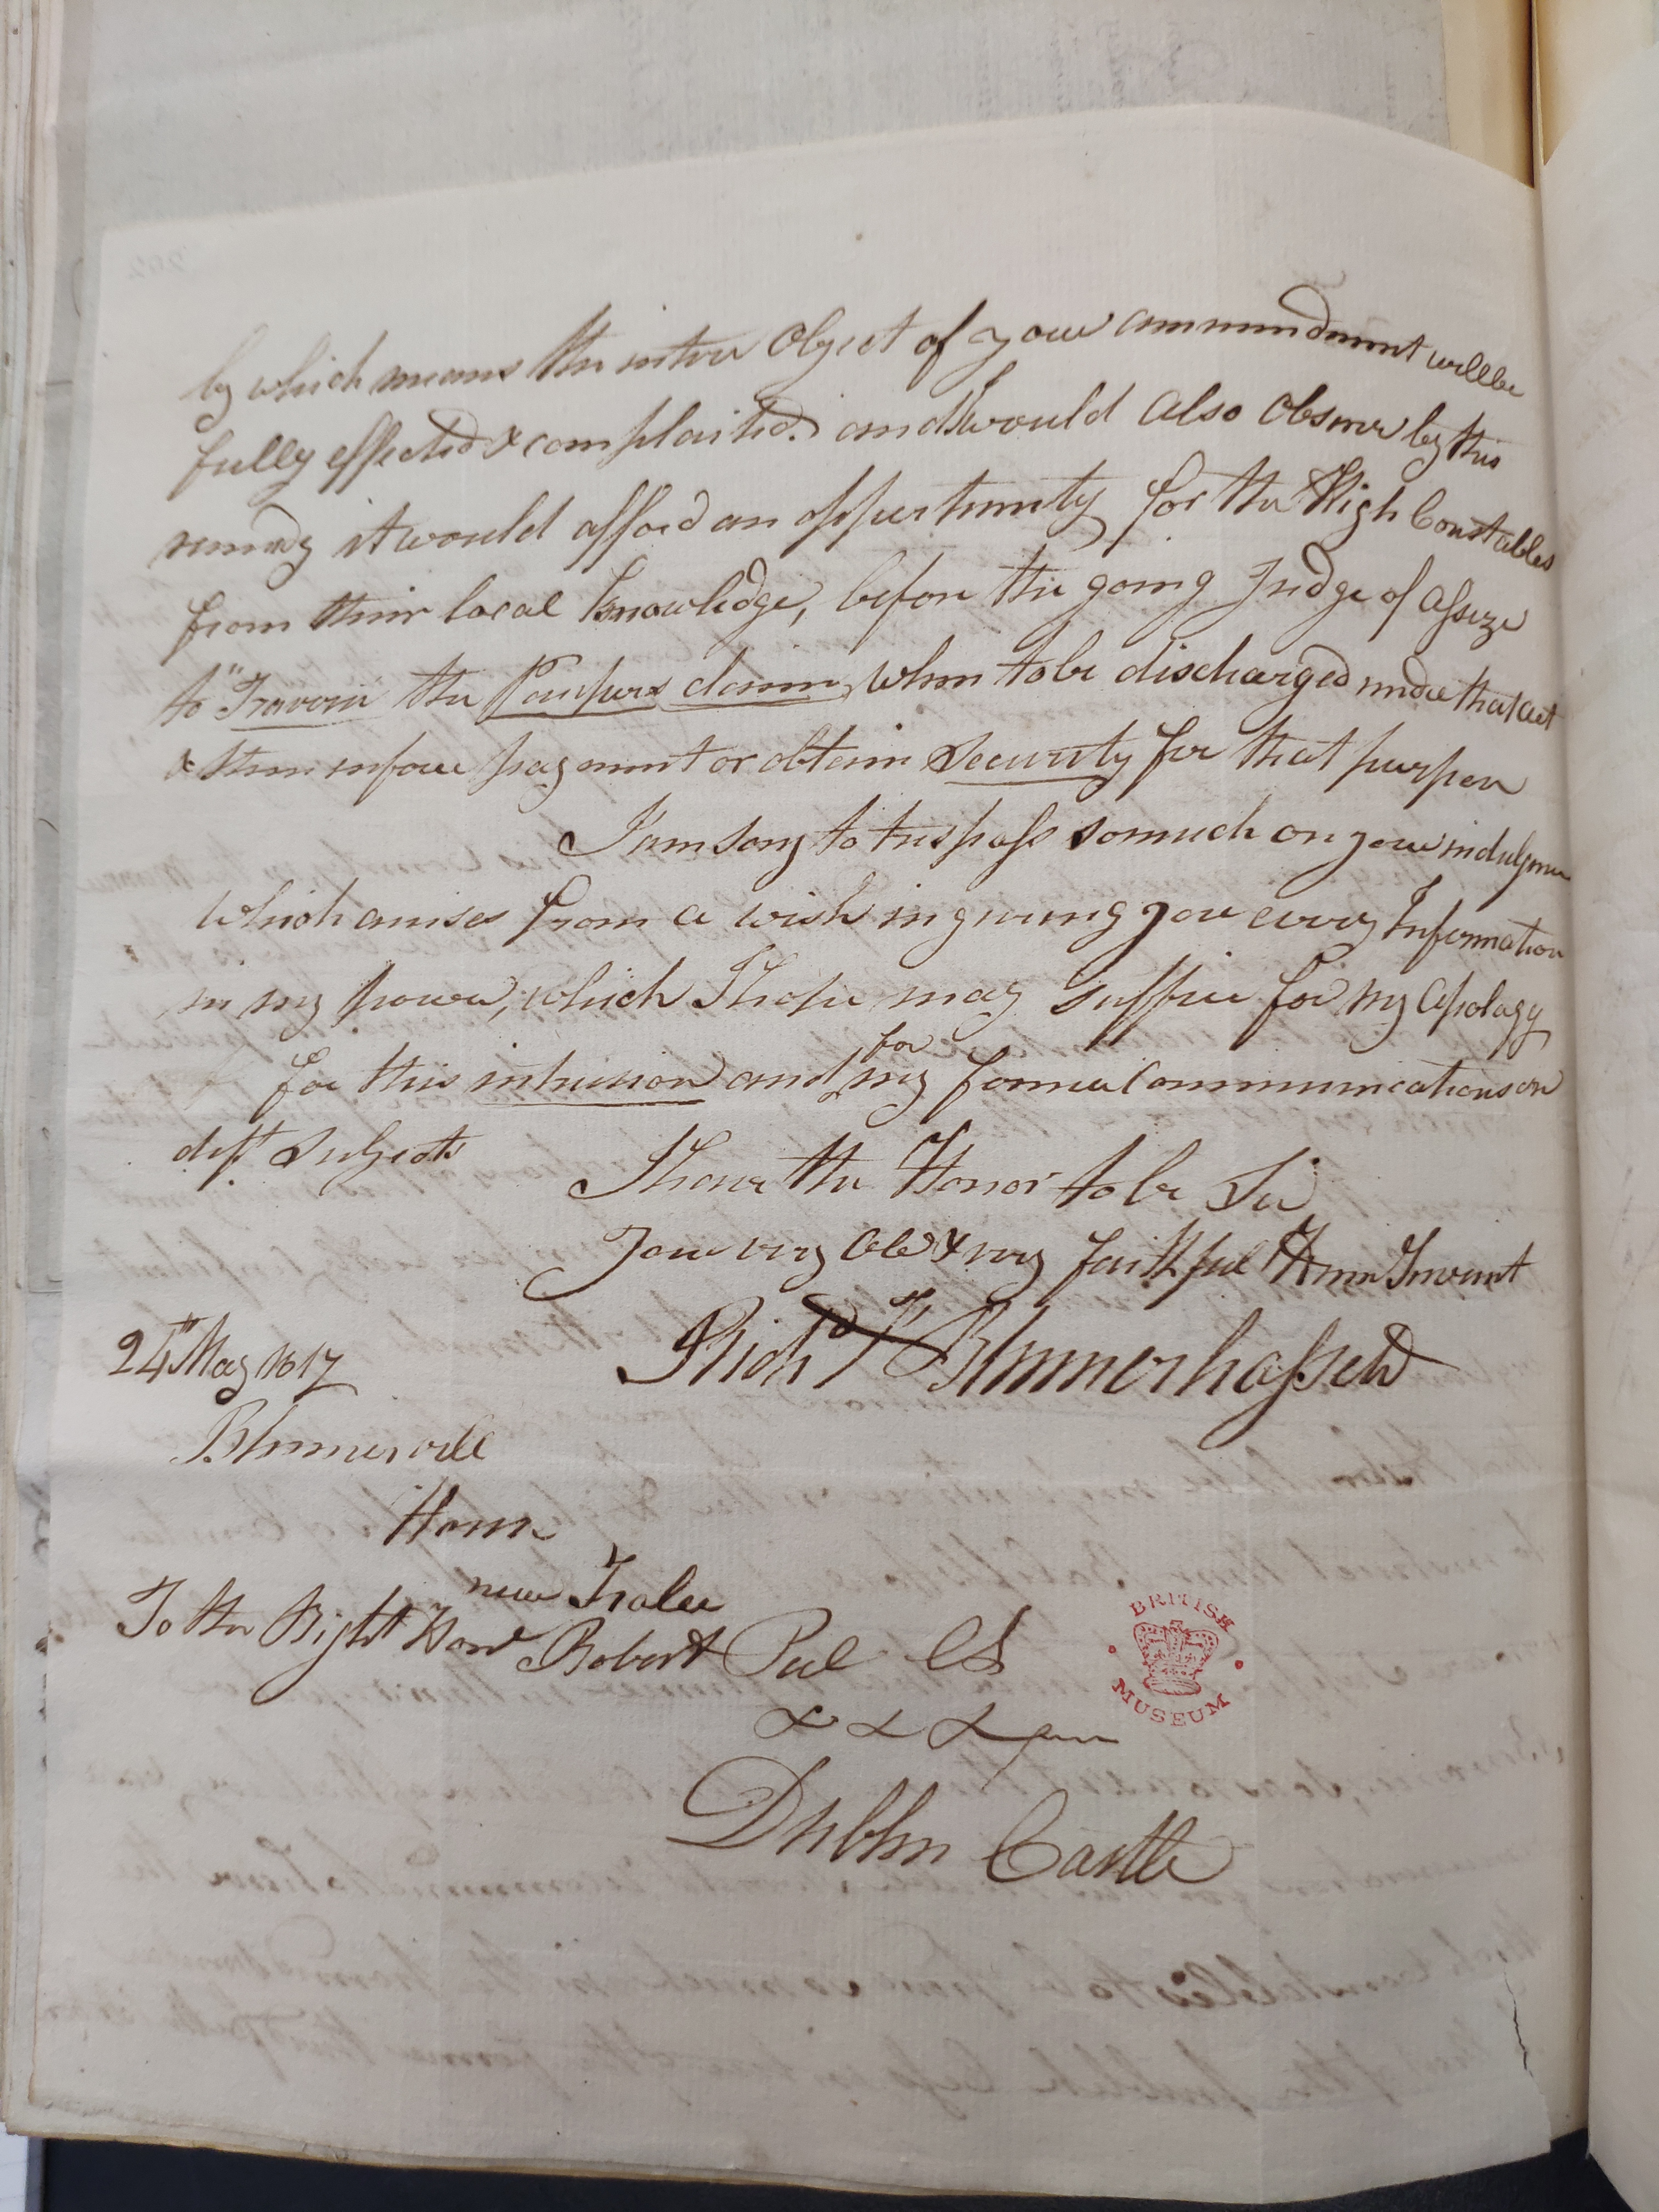 by which means the intire Object of your ammendment will be
fully effected & complaited. and I would Also Observe by this
remidy it would afford an oppertunity for the High Constables
from their local Knowledge, before the going Judge of Assize
to "Traverse the Paupers claim, when to be discharged under that act
& then inforce payment or obtain Security for that purpose
I am sorry to trespass so much on your indulgence
which arrises from a wish in giving you every Information
in my power, which I hope may suffice for my Apology
for this intrusion and for my former Communications on
dift. Subjects
I have the Honor to be Sir
Your very Obt & very faithful Hum Servant
Richd F Blennerhassett
24th May 1817
Blennerville
Home
near Tralee
To the Right Honl Robert Peel CS
&c &c &c
Dublin Castle
BRITISH
MUSEUM